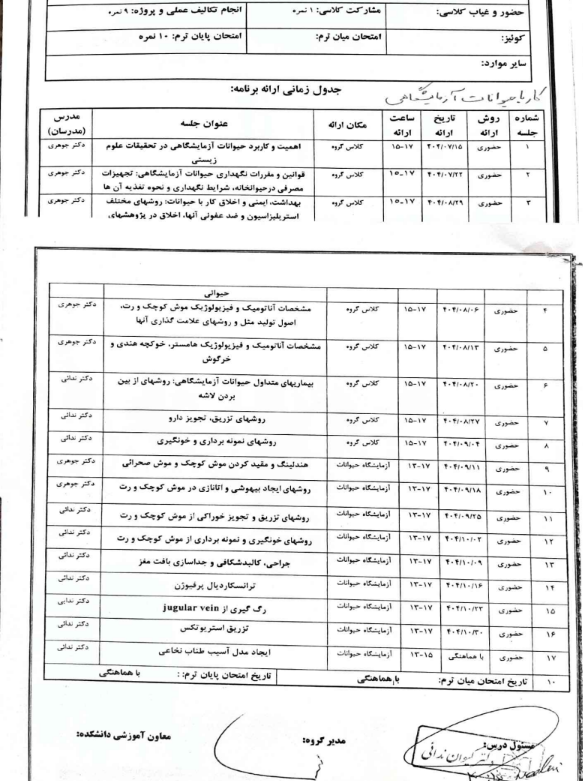 حضور و غیاب کلاسی: مشارکت کلاسی: ۱ نمره انجام تکالیف عملی و پروژه: ۹ نمره
کوئیز: امتحان میان ترم: امتحان پایان ترم: ۱۰ نمره
سایر موارد:
کار با حیوانات آزمایشگاهی
جدول زمانی ارائه برنامه:
شماره جلسه روش ارائه تاریخ ارائه ساعت ارائه مکان ارائه عنوان جلسه مدرس (مدرسان)
۱ حضوری ۴۰۴/۰۷/۱۵ ۱۵-۱۷ کلاس گروه اهمیت و کاربرد حیوانات آزمایشگاهی در تحقیقات علوم زیستی دکتر جوهری
۲ حضوری ۴۰۴/۰۷/۲۲ ۱۵-۱۷ کلاس گروه قوانین و مقررات نگهداری حیوانات آزمایشگاهی: تجهیزات مصرفی درحیوانخانه، شرایط نگهداری و نحوه تغذیه آن ها دکتر جوهری
۳ حضوری ۴۰۴/۰۸/۲۹ ۱۵-۱۷ کلاس گروه بهداشت، ایمنی و اخلاق کار با حیوانات: روشهای مختلف استریلیزاسیون و ضد عفونی آنها، اخلاق در پژوهشهای دکتر جوهری
حیوانی
۴ حضوری ۴۰۴/۰۸/۰۶ ۱۵-۱۷ کلاس گروه مشخصات آناتومیک و فیزیولوژیک موش کوچک و رت، اصول تولید مثل و روشهای علامت گذاری آنها دکتر جوهری
۵ حضوری ۴۰۴/۰۸/۱۳ ۱۵-۱۷ کلاس گروه مشخصات آناتومیک و فیزیولوژیک هامستر، خوکچه هندی و خرگوش دکتر جوهری
۶ حضوری ۴۰۴/۰۸/۲۰ ۱۵-۱۷ کلاس گروه بیماریهای متداول حیوانات آزمایشگاهی: روشهای از بین بردن لاشه دکتر ندائی
۷ حضوری ۴۰۴/۰۸/۲۷ ۱۵-۱۷ کلاس گروه روشهای تزریق، تجویز دارو دکتر ندائی
۸ حضوری ۴۰۴/۰۹/۰۴ ۱۵-۱۷ کلاس گروه روشهای نمونه برداری و خونگیری دکتر ندائی
۹ حضوری ۴۰۴/۰۹/۱۱ ۱۳-۱۷ آزمایشگاه حیوانات هندلینگ و مقید کردن موش کوچک و موش صحرائی دکتر جوهری
۱۰ حضوری ۴۰۴/۰۹/۱۸ ۱۳-۱۷ آزمایشگاه حیوانات روشهای ایجاد بیهوشی و اتانازی در موش کوچک و رت دکتر جوهری
۱۱ حضوری ۴۰۴/۰۹/۲۵ ۱۳-۱۷ آزمایشگاه حیوانات روشهای تزریق و تجویز خوراکی از موش کوچک و رت دکتر ندائی
۱۲ حضوری ۴۰۴/۱۰/۰۲ ۱۳-۱۷ آزمایشگاه حیوانات روشهای خونگیری و نمونه برداری از موش کوچک و رت دکتر ندائی
۱۳ حضوری ۴۰۴/۱۰/۰۹ ۱۳-۱۷ آزمایشگاه حیوانات جراحی، کالبدشکافی و جداسازی بافت مغز دکتر جوهری
۱۴ حضوری ۴۰۴/۱۰/۱۶ ۱۳-۱۷ آزمایشگاه حیوانات ترانسکاردیال پرفیوژن دکتر ندائی
۱۵ حضوری ۴۰۴/۱۰/۲۳ ۱۳-۱۷ آزمایشگاه حیوانات رگ گیری از jugular vein دکتر ندایی
۱۶ حضوری ۴۰۴/۱۰/۳۰ ۱۳-۱۷ آزمایشگاه حیوانات تزریق استریوتکس دکتر ندائی
۱۷ حضوری با هماهنگی ۱۳-۱۵ آزمایشگاه حیوانات ایجاد مدل آسیب طناب نخاعی دکتر ندائی
۱۰ تاریخ امتحان میان ترم: با هماهنگی تاریخ امتحان پایان ترم: : با هماهنگی
مسئول درس: مدیر گروه: معاون آموزشی دانشکده:
دکتر کیوان ندائی